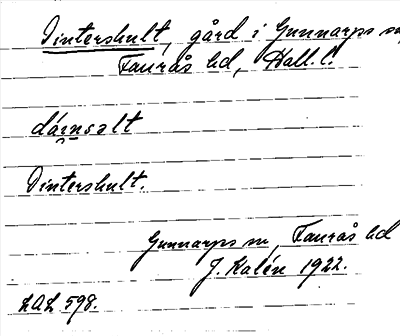 Dintershult, gård i Gunnarps sn,
Faurås hd, Hall. l.
dárnsalt
Dintershult.
Gunnarps sn, Faurås hd
J. Kalén 1922.
LAL 598.